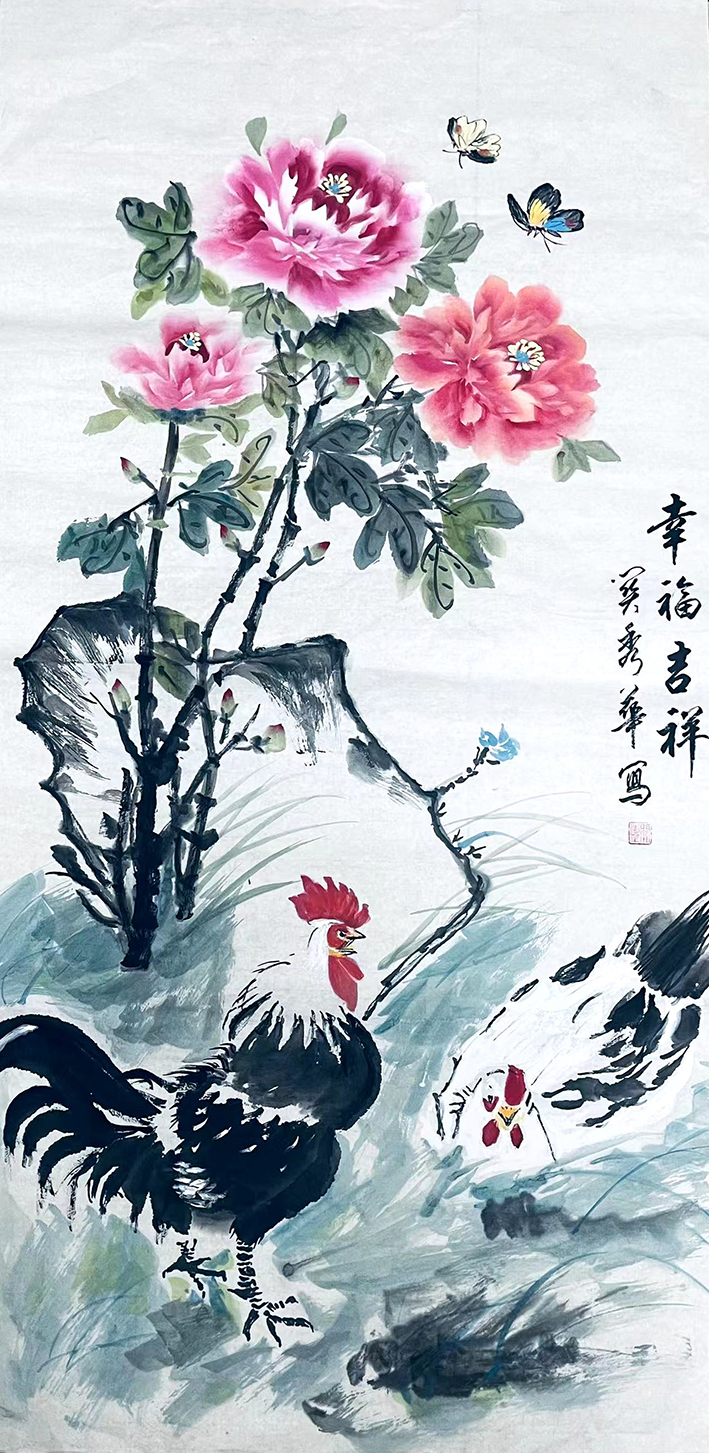 幸福吉祥
秀華寫